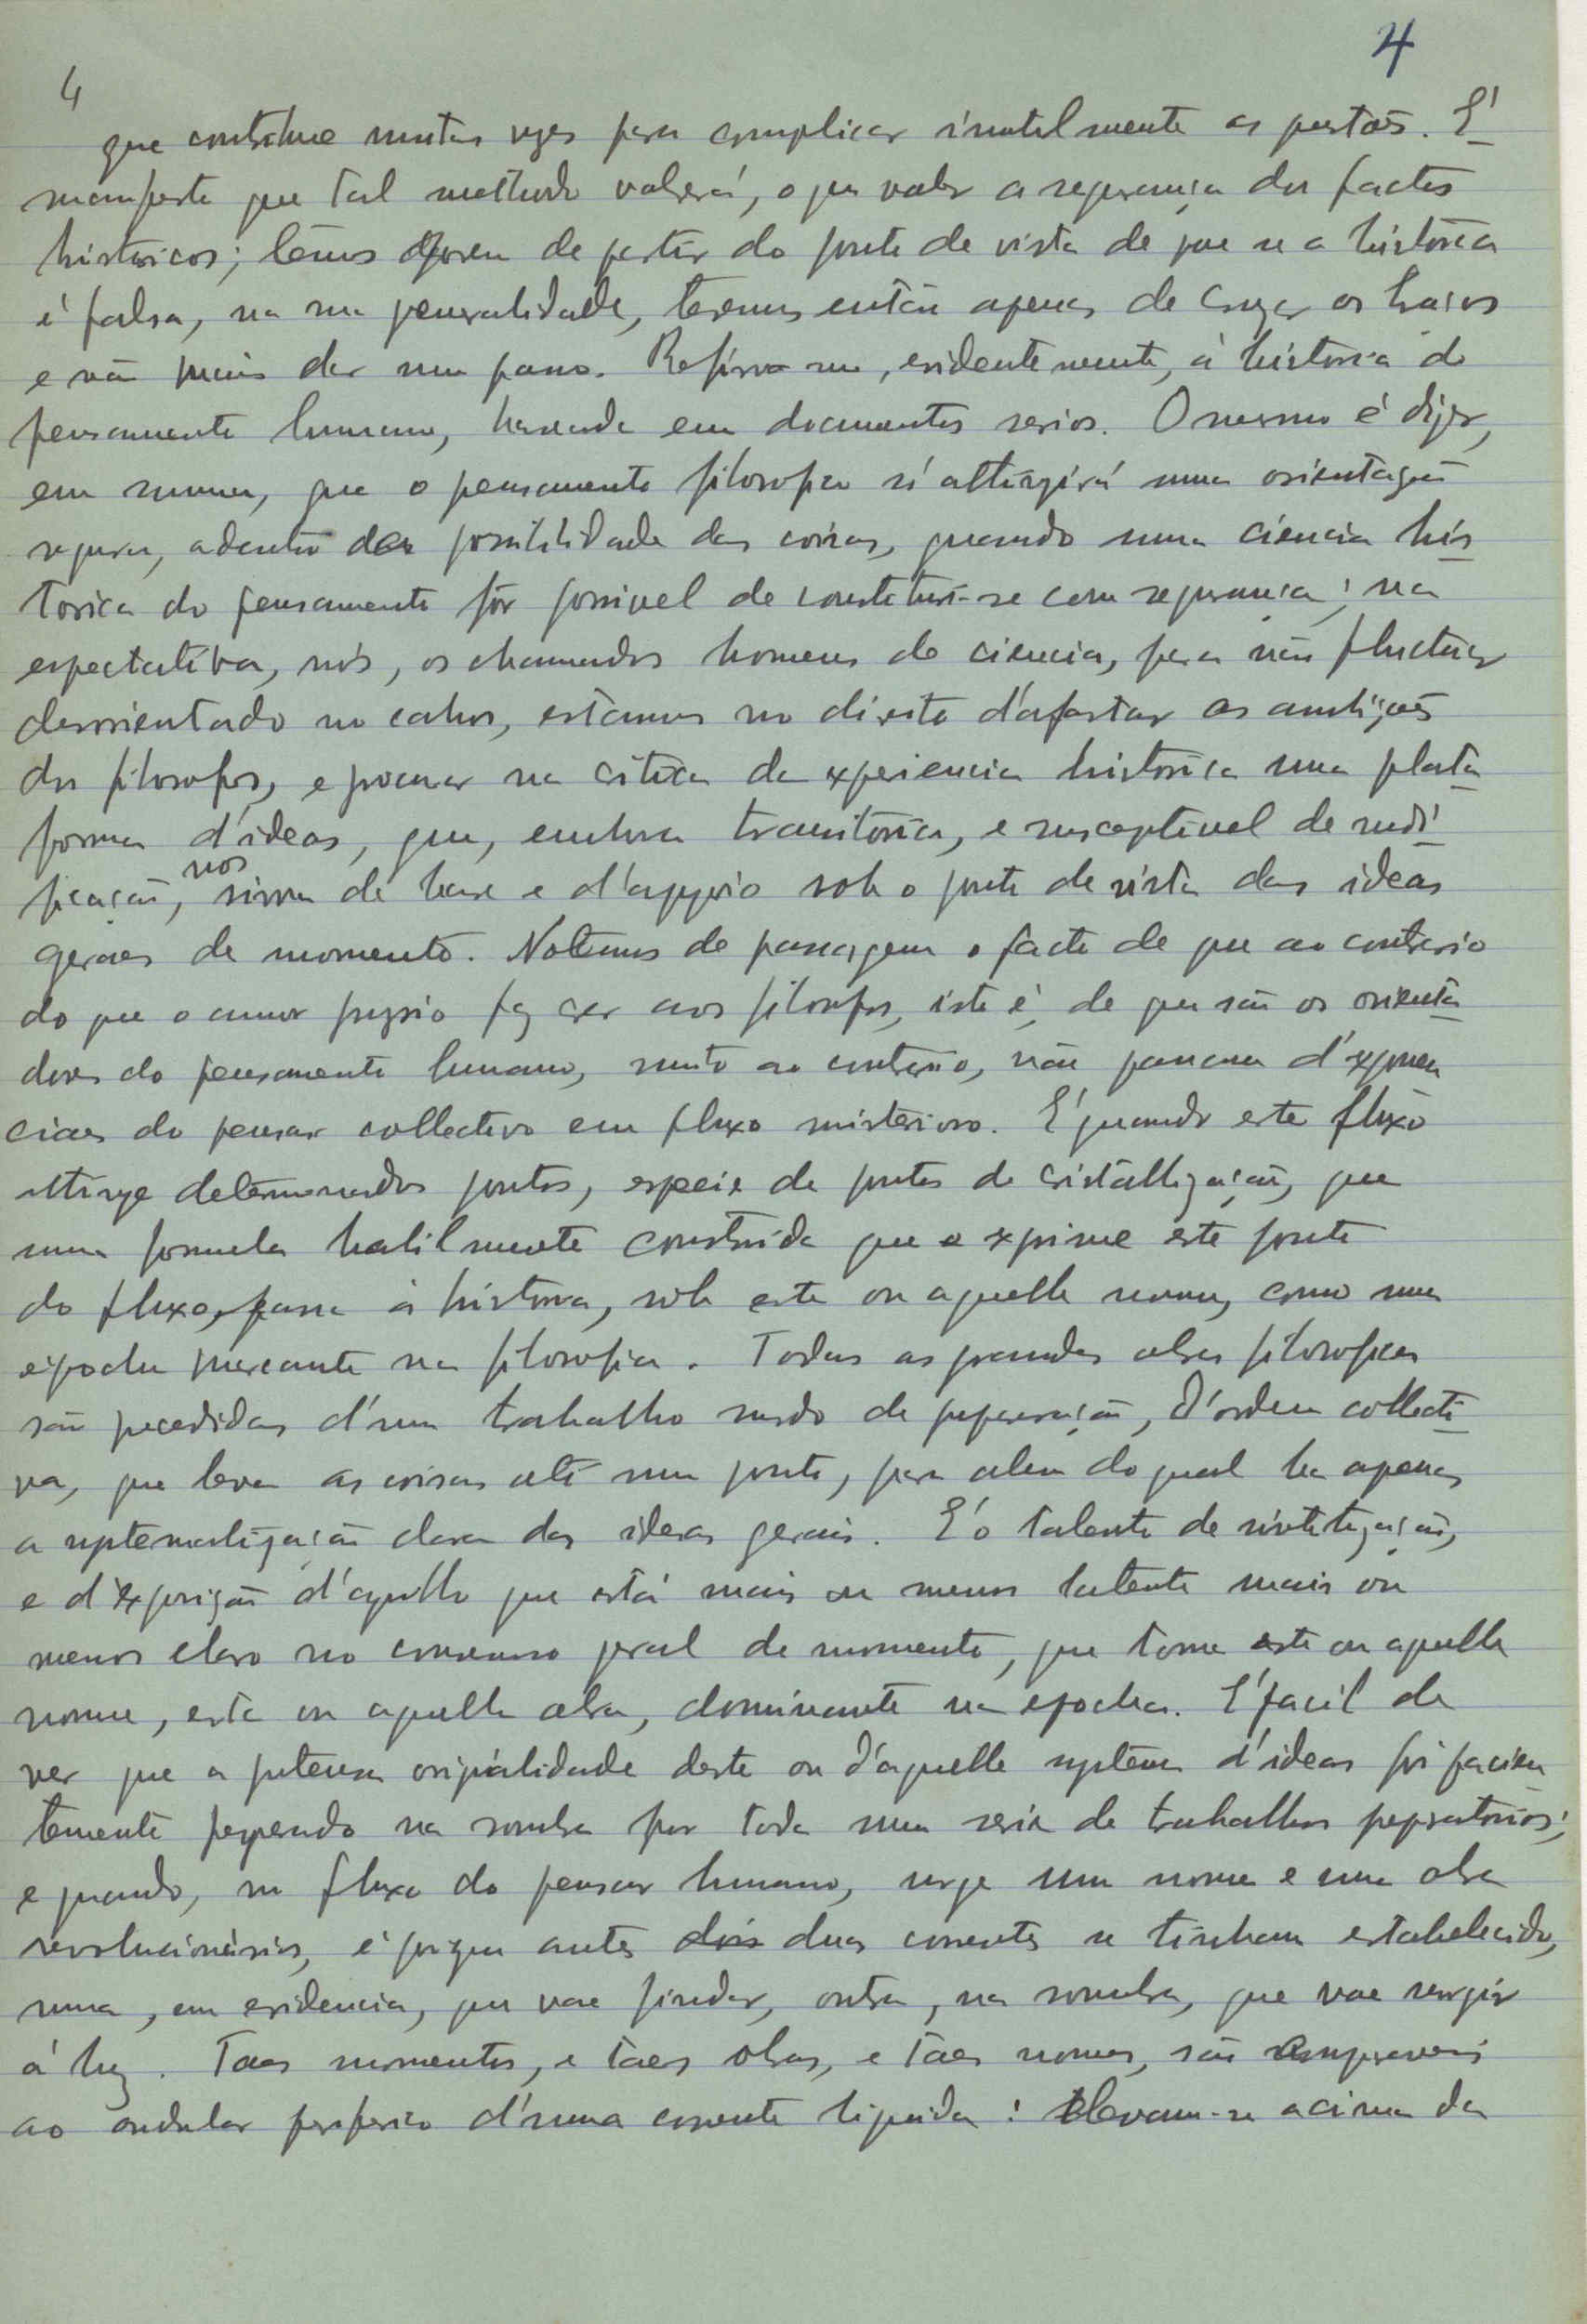 4
4
que contribue muitas vezes para complicar inutilmente as questões. É
manifesto que tal methodo valerá, o que valer a segurança dos factos
historicos; temos porem de partir do ponto de vista de que se a historia
é falsa, na sua generalidade, teremos então apenas de cruzar os braços
e não mais dar um passo. Refiro-me, evidentemente, á historia do
pensamento humano, baseada em documentos serios. O mesmo é dizer,
em summa, que o pensamento filosofico só attingirá uma orientação
segura, adentro da possibilidade das coisas, quando uma ciencia his
torica do pensamento fôr possivel de constituir-se com segurança; na
espectativa, nós, os chamados homens de ciencia, para não fluctuar
desorientado no cahos, estamos no direito d'afastar as ambições
dos filosofos, e procurar na critica da experiencia historica uma plata
forma d'ideas, que, embora transitoria, e susceptivel de modi
ficação, nos sirva de base e d'appoio sob o ponto de vista das ideas
geraes de momento. Notemos de passagem o facto de que ao contrario
do que o amor proprio faz crer aos filosofos, isto é, de que são os orienta
dores do pensamento humano, muito ao contrario, não passam d'exponen
ciaes do pensar collectivo em fluxo misterioso. É quando este fluxo
attinge determinados pontos, especie de pontos de cristallização, que
uma formula habilmente construida que exprime este ponto
do fluxo, passa á historia, sob este ou aquelle nome, como uma
epocha marcante na filosofia. Todas as grandes obras filosoficas
são precedidas d'um trabalho surdo de preparação, d'ordem collecti
va, que leva as coisas até um ponto, para alem do qual ha apenas
a systematização clara das ideas gerais. É o talento de sintetização,
e d'exposição d'aquillo que está mais ou menos latente mais ou
menos claro no consenso geral de momento, que torna este ou aquelle
nome, esta ou aquella obra, dominante na epocha. É facil de
ver que a pretensa originalidade deste ou d'aquelle systema d'ideas foi pacien
temente preparado na sombra por toda uma serie de trabalhos preparatorios;
e quando, no fluxo do pensar humano, surge um nome e uma obra
revolucionarios, é porque antes duas correntes se tinham estabelecido,
uma, em evidencia, que vae findar, outra, na sombra, que vae surgir
á luz. Taes momentos, e taes obras, e taes nomes, são comparaveis
ao ondular periferico d'uma corrente liquida: Elevam-se acima da